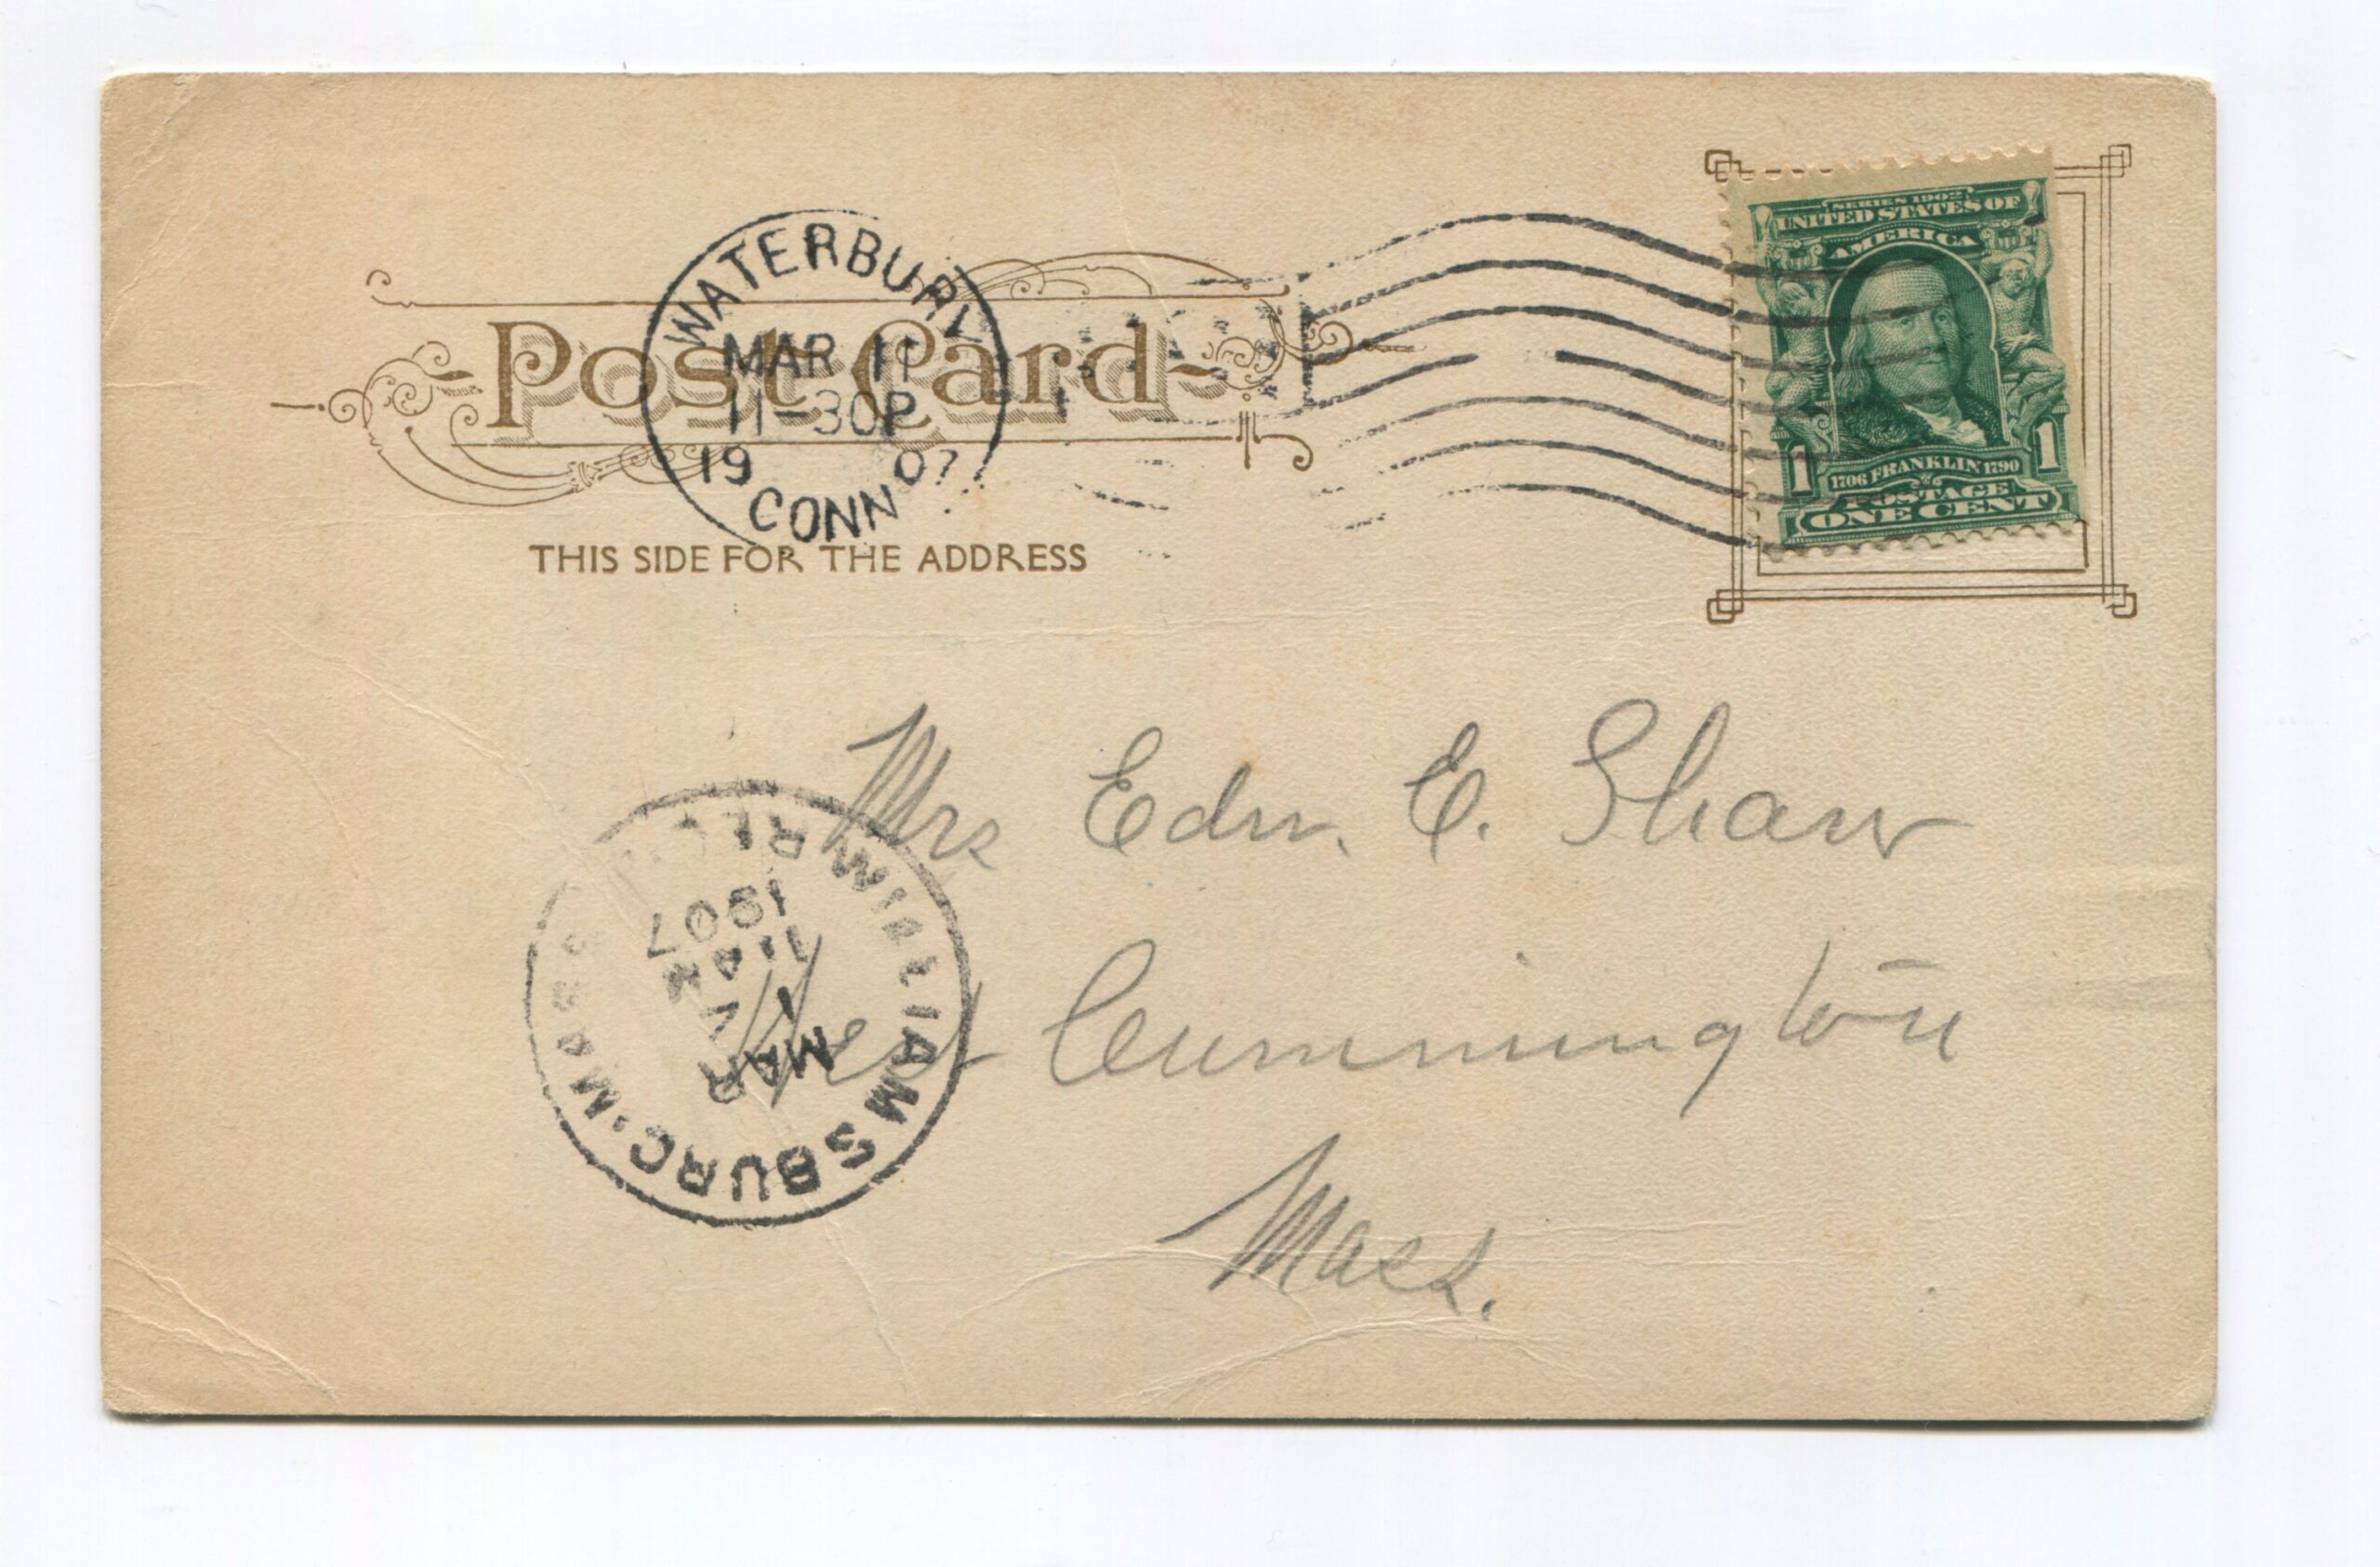 WATERBURY
MAR 11
11-30P
19 07
CONN
Post Card
THIS SIDE FOR THE ADDRESS
SERIES 1902
UNITED STATES OF
AMERICA
1706 FRANKLIN 1790
POSTAGE
1 ONE CENT 1
Mrs Edw. E. Shaw
West Cummington
Mass.
WILLIAMSBURG, MASS.
MAR
1907